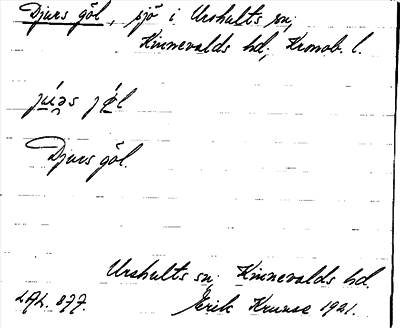 Djurs göl, sjö i Urshults sn,
Kinnevalds hd, Kronob. l.
Djurs göl.
Urshults sn. Kinnevalds hd.
Erik 1921.